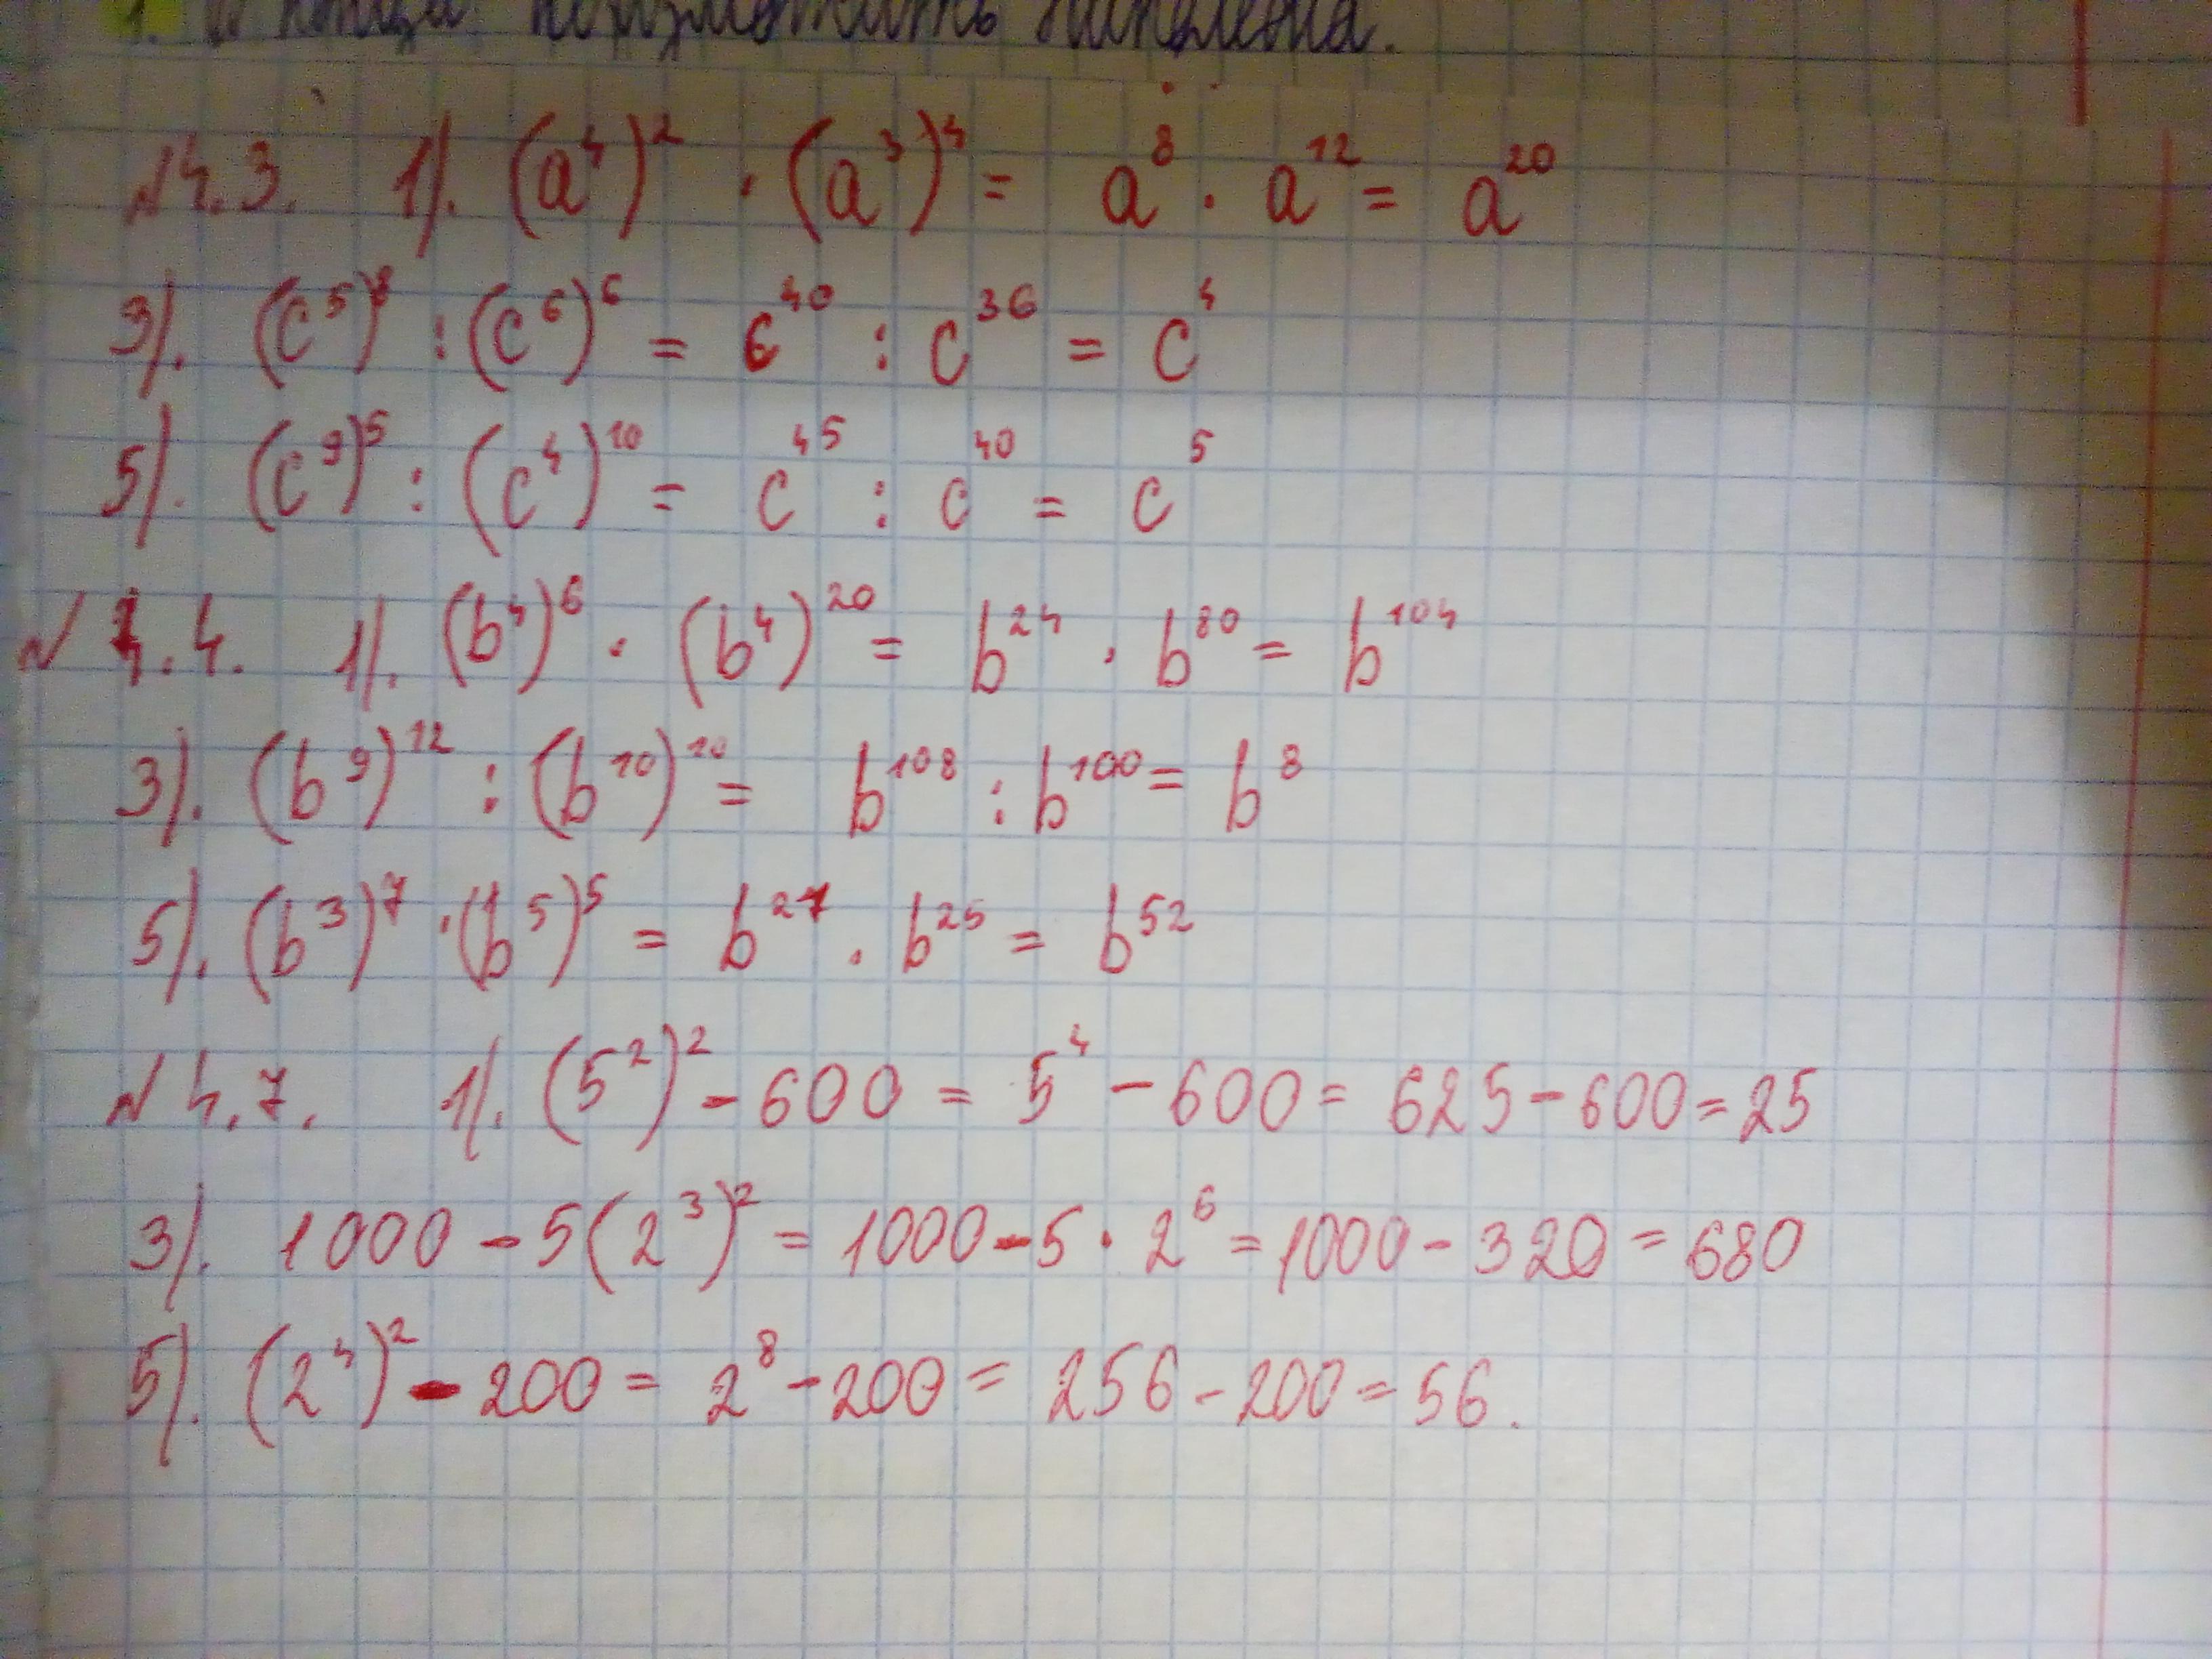 №4.3. 1). (a⁴)² · (a³)⁴ = a⁸ · a¹² = a²⁰
3). (c⁵)⁸ : (c⁶)⁶ = c⁴⁰ : c³⁶ = c⁴
5). (c⁹)⁵ : (c⁴)¹⁰ = c⁴⁵ : c⁴⁰ = c⁵
№4.4. 1). (b⁴)⁶ · (b⁴)²⁰ = b²⁴ · b⁸⁰ = b¹⁰⁴
3). (b⁹)¹² : (b¹⁰)¹⁰ = b¹⁰⁸ : b¹⁰⁰ = b⁸
5). (b³)⁷ · (b⁵)⁵ = b²⁷ · b²⁵ = b⁵²
№4.7. 1). (5²)² - 600 = 5⁴ - 600 = 625 - 600 = 25
3). 1000 - 5(2³)² = 1000 - 5 · 2⁶ = 1000 - 320 = 680
5). (2⁴)² - 200 = 2⁸ - 200 = 256 - 200 = 56.